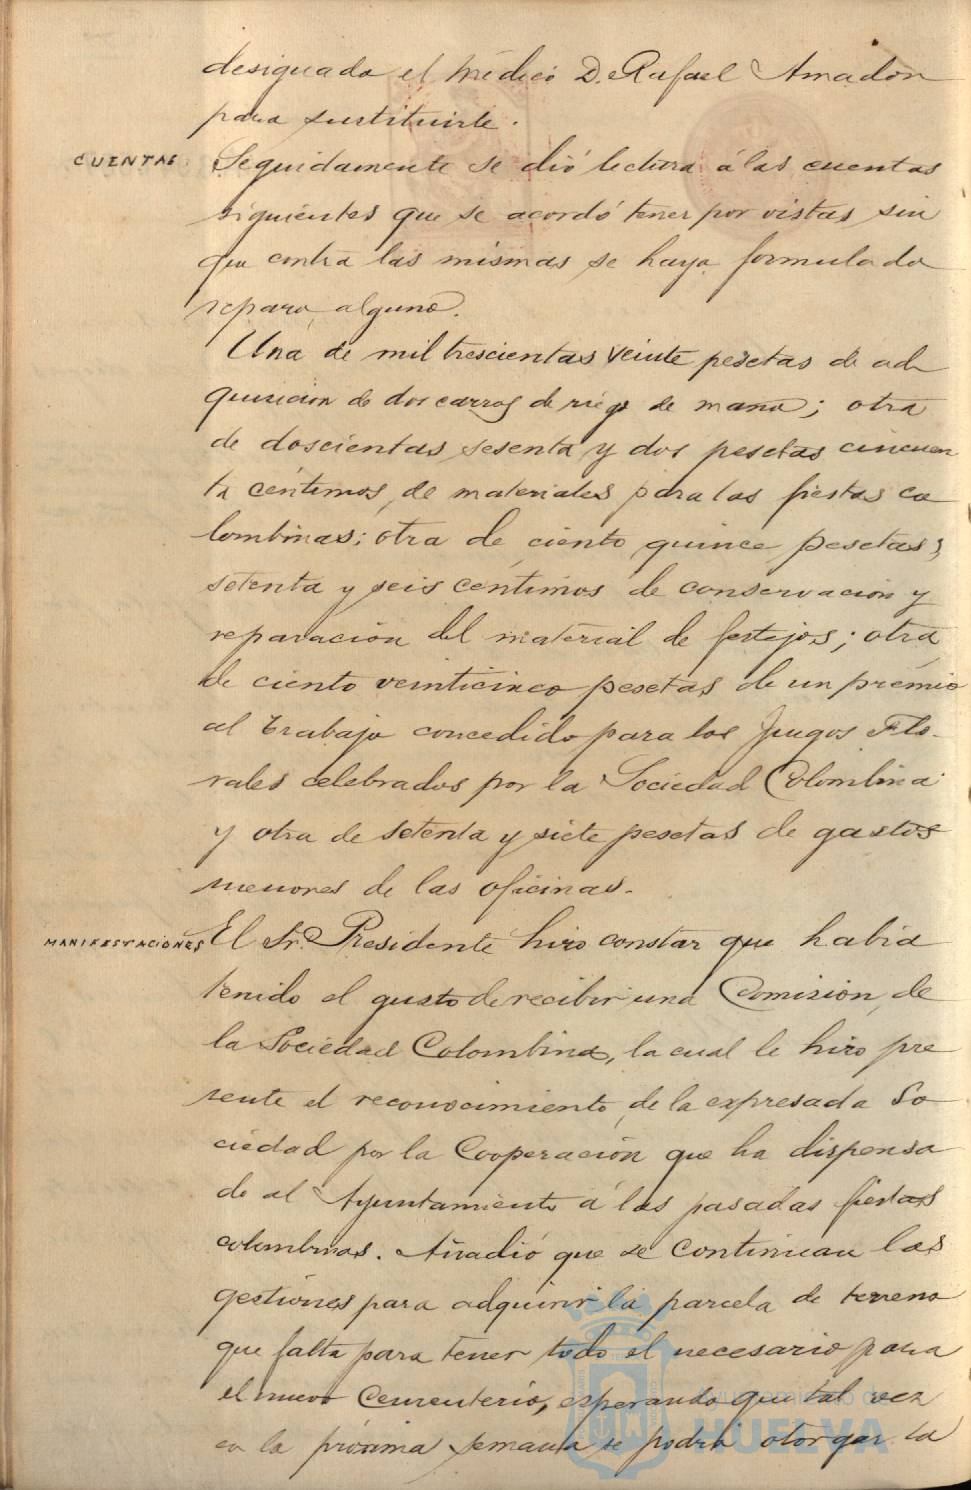 designado el médico D. Rafael Amador
para sustituirle.
CUENTAS
Seguidamente se dió lectura á las cuentas
siguientes que se acordó tener por vistas sin
que contra las mismas se haya formulado
reparo alguno.
Una de mil trescientas veinte pesetas de ad
quisición de dos carros de riego de mano; otra
de doscientas sesenta y dos pesetas cincuen
ta céntimos, de materiales para las fiestas co
lombinas; otra de ciento quince pesetas,
setenta y seis centimos de conservación y
reparación del material de festejos; otra
de ciento veinticinco pesetas de un premio
al trabajo concedido para los Juegos Flo-
rales celebrados por la Sociedad Colombina
y otra de setenta y siete pesetas de gastos
menores de las oficinas.
MANIFESTACIONES
El Sr. Presidente hizo constar que habia
tenido el gusto de recibir una Comisión, de
la Sociedad Colombina, la cual le hizo pre
sente el reconocimiento de la expresada So
ciedad por la Cooperación que ha dispensa
do al Ayuntamiento á las pasadas fiestas
colombinas. Añadió que se continuan las
gestiones para adquirir la parcela de terreno
que falta para tener todo el necesario para
el nuevo Cementerio, esperando que tal vez
en la próxima semana se podrá otorgar la
Ayuntamiento de
HUELVA